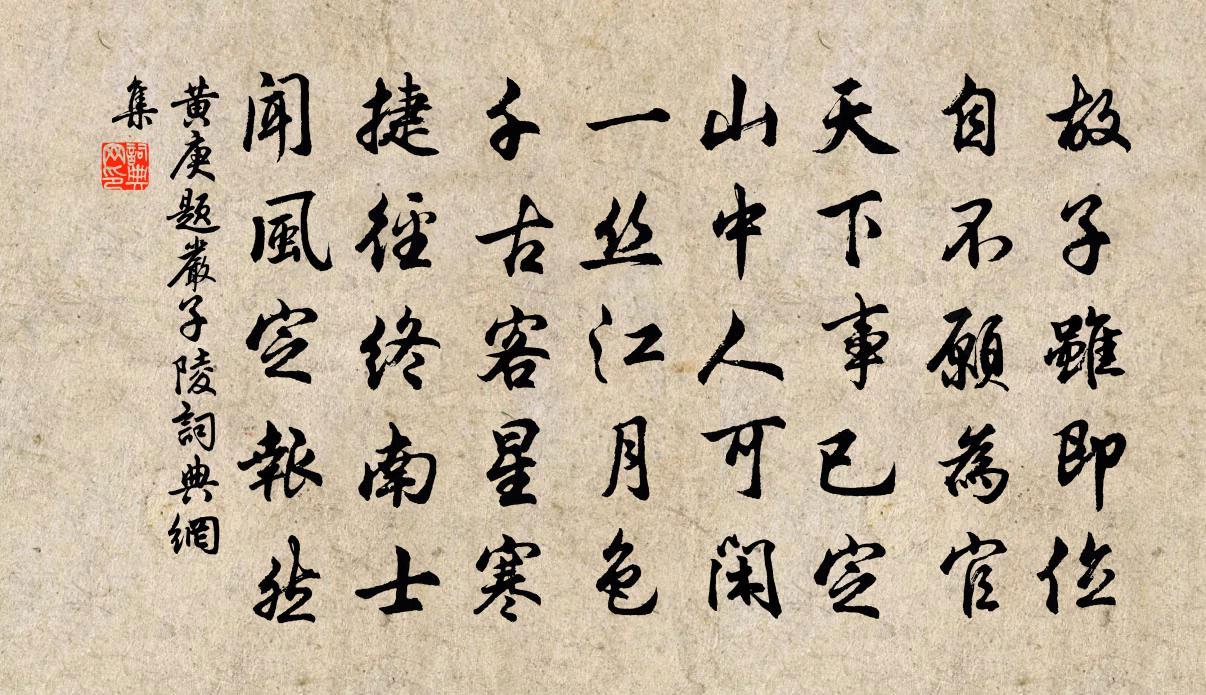 故子雖即位
自不願為官
天下事已定
山中人可閑
一丝江月色
千古客星寒
捷徑終南士
聞風定報然
黄庚題嚴子陵詞典網
集
詞典网印